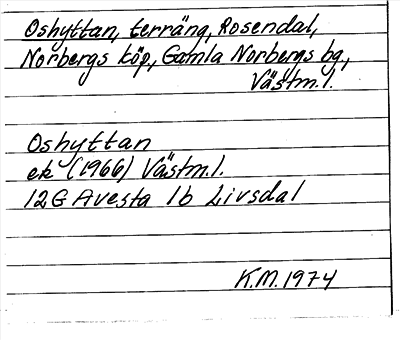 Oshyttan, terräng, Rosendal,
Norbergs köp, Gamla Norbergs bg,
Västm.l.
Oshyttan
ek (1966) Västm.l.
12G Avesta 1b Livsdal
K.M. 1974